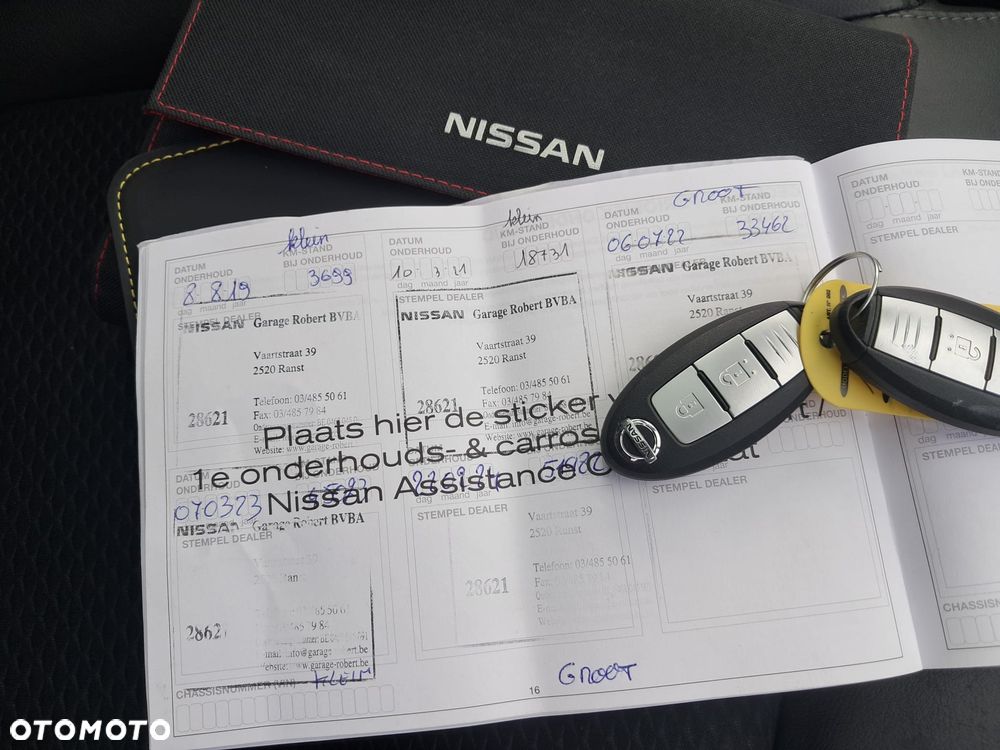 NISSAN
klein
DATUM ONDERHOUD
KM-STAND BIJ ONDERHOUD
8.8.19
3699
dag maand jaar
STEMPEL DEALER
NISSAN Garage Robert BVBA
Vaartstraat 39
2520 Ranst
28621
Telefoon: 03/485 50 61
Fax: 03/485 79 84
Website: www.garage-robert.be
klein
DATUM ONDERHOUD
KM-STAND BIJ ONDERHOUD
10 3 21
18731
dag maand jaar
STEMPEL DEALER
NISSAN Garage Robert BVBA
Vaartstraat 39
2520 Ranst
28621
Telefoon: 03/485 50 61
Fax: 03/485 79 84
E-mail: info@garage-robert.be
Website: www.garage-robert.be
GROOT
DATUM ONDERHOUD
KM-STAND BIJ ONDERHOUD
060722
33462
NISSAN Garage Robert BVBA
Vaartstraat 39
2520 Ranst
DATUM ONDERHOUD
KM-STAND BIJ ONDERHOUD
dag maand jaar
STEMPEL DEALER
Plaats hier de sticker
1e onderhouds- & carros
Nissan Assistance
070323
NISSAN Garage Robert BVBA
STEMPEL DEALER
28621
KLEIN
CHASSISNUMMER (VIN)
dag maand jaar
STEMPEL DEALER
Vaartstraat 39
2520 Ranst
28621
Telefoon: 03/485 50 61
Fax: 03/485 79 84
GROOT
STEMPEL DEALER
16
STEMPEL DEALER
NISSAN
OTOMOTO